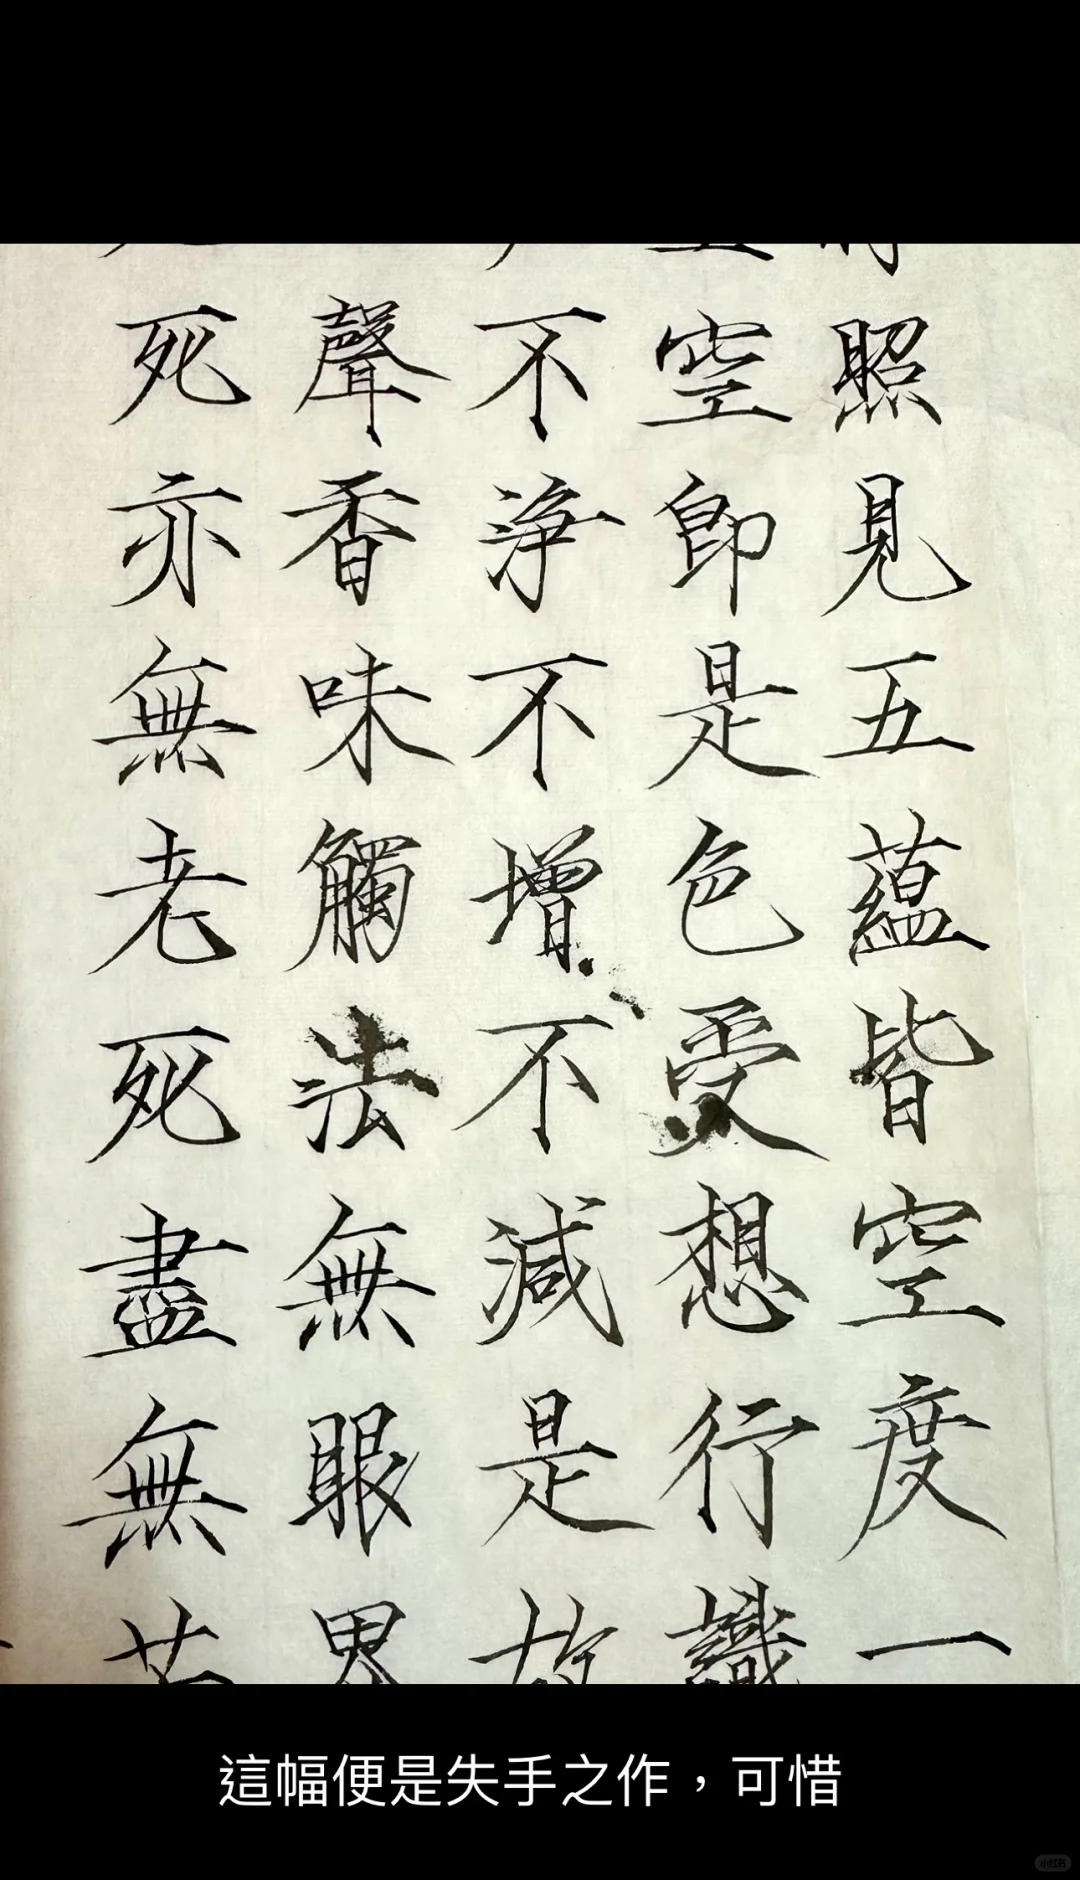 照見五蘊皆空度一
空即是色受想行識
不淨不增不減是故
聲香味觸法無眼界
死亦無老死盡無苦
這幅便是失手之作，可惜
小红书